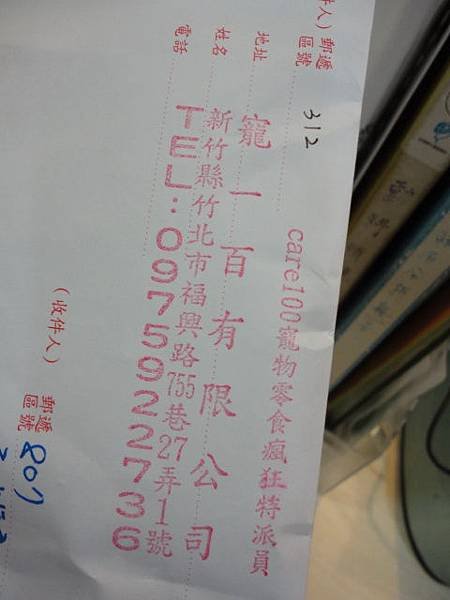 件人)
郵遞區號
312
care100寵物零食瘋狂特派員
地址
寵一百有限公司
姓名
新竹縣竹北市福興路755巷27弄1號
電話
TEL:0975922736
(收件人)
郵遞區號
807